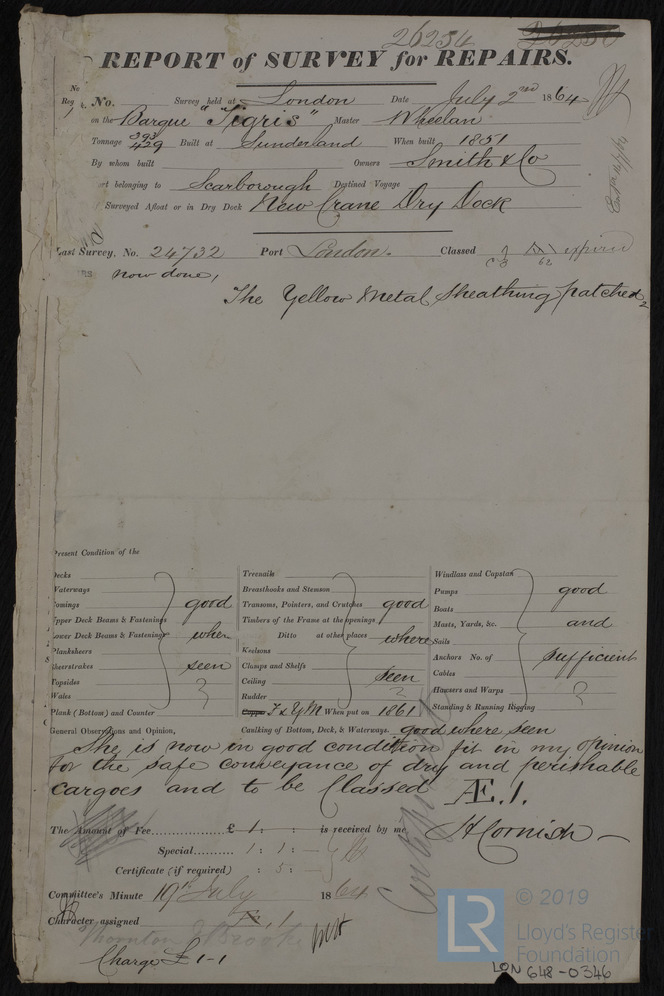 26254
REPORT of SURVEY for REPAIRS.
No. Survey held at London Date July 2nd 1864
on the Barque "Tigris" Master Whelan
Tonnage 393 429 Built at Sunderland When built 1851
By whom built Owners Smith & Co
rt belonging to Scarborough Destined Voyage
Surveyed Afloat or in Dry Dock New Crane Dry Dock
Last Survey, No. 24732 Port London. Classed 62 expired
now done,
The Yellow Metal Sheathing patched
Present Condition of the
Decks
Waterways
Comings
Upper Deck Beams & Fastenings
Lower Deck Beams & Fastenings
Planksheers
Sheerstrakes
Topsides
Wales
Plank (Bottom) and Counter
good
when
seen
Treenails
Breasthooks and Stemson
Transoms, Pointers, and Crutches good
Timbers of the Frame at the openings
Ditto at other places where
Keelsons
Clamps and Shelfs
Ceiling seen
Rudder
Copper F & YM When put on 1861
Windlass and Capstan
Pumps good
Boats
Masts, Yards, &c. and
Sails
Anchors No. of sufficient
Cables
Hawsers and Warps
Standing & Running Rigging
General Observations and Opinion, Caulking of Bottom, Deck, & Waterways. good where seen
She is now in good condition fit in my opinion
for the safe conveyance of dry and perishable
cargoes and to be Classed Æ.1.
The Amount of Fee £ 1 : : is received by me H Cornish
Special 1 : 1 :
Certificate (if required) : 5 :
Committee's Minute 19th July 1864
Character assigned Æ 1
Charge £ 1-1
© 2019
LR
Lloyd's Register
Foundation
LON 648-0346